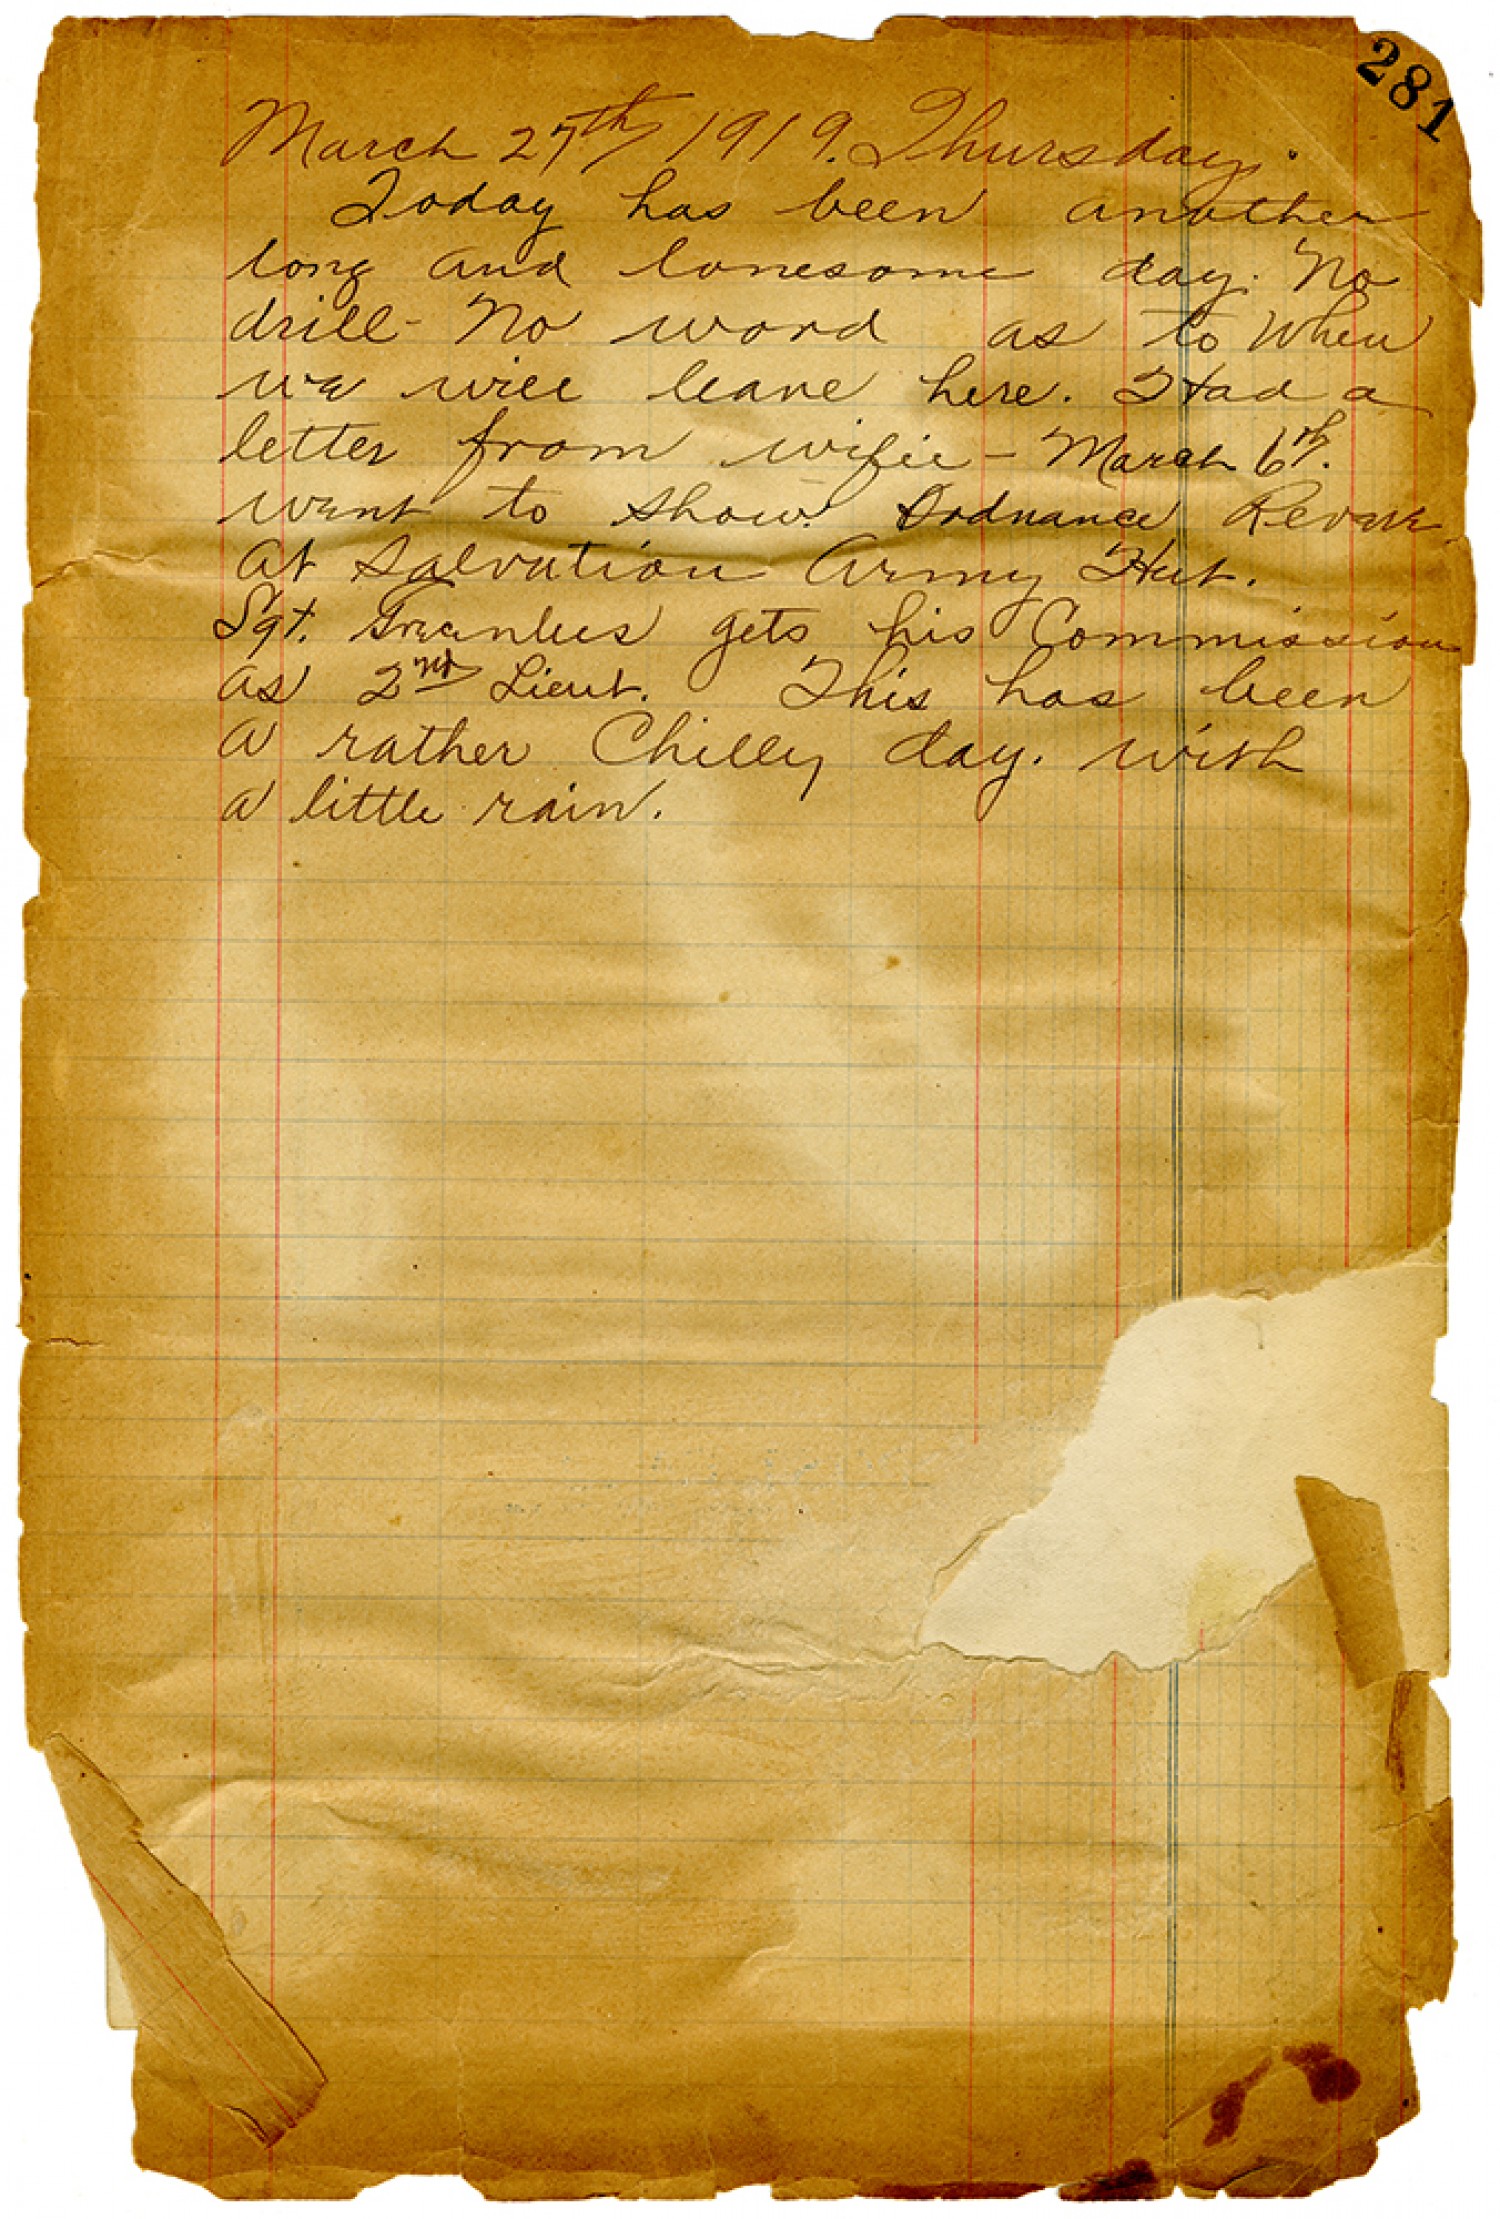 281
March 27th 1919. Thursday.
Today has been another
long and lonesome day. No
drill - No word as to when
we will leave here. Had a
letter from wifie - March 6th.
went to show. Ordnance Revue
at Salvation Army Hut.
Sgt. Greenlees gets his Commission
as 2nd Lieut. This has been
a rather Chilly day. with
a little rain.